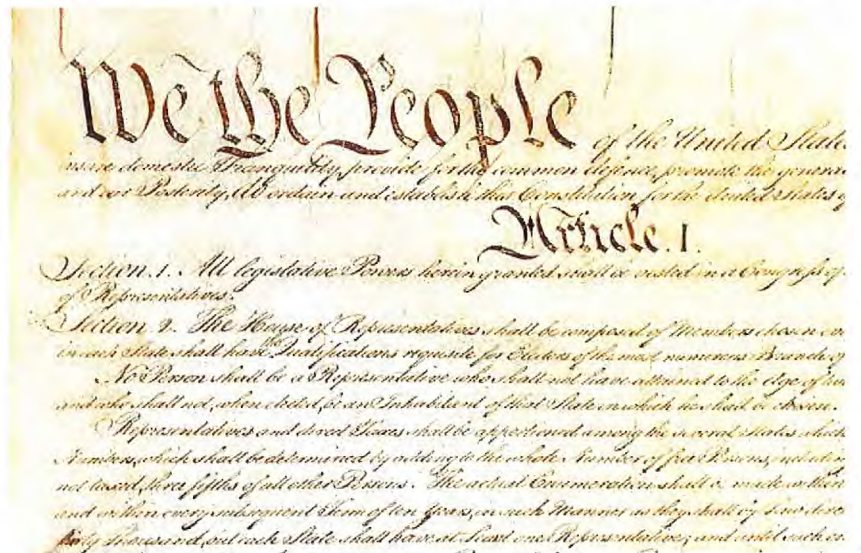 We the People of the United State
insure domestic Tranquility, provide for the common defence, promote the genera
and our Posterity, do ordain and establish this Constitution for the United States of
Article. I.
Section. 1. All legislative Powers herein granted shall be vested in a Congress of
of Representatives.
Section. 2. The House of Representatives shall be composed of Members chosen eve
in each State shall have Qualifications requisite for Electors of the most numerous Branch of
No Person shall be a Representative who shall not have attained to the Age of twe
and who shall not, when elected, be an Inhabitant of that State in which he shall be chosen.
Representatives and direct Taxes shall be apportioned among the several States which
Numbers, which shall be determined by adding to the whole Number of free Persons, includin
not taxed, three fifths of all other Persons. The actual Enumeration shall be made within
and within every subsequent Term of ten Years, in such Manner as they shall by Law direc
thirty Thousand, but each State shall have at Least one Representative; and until such en